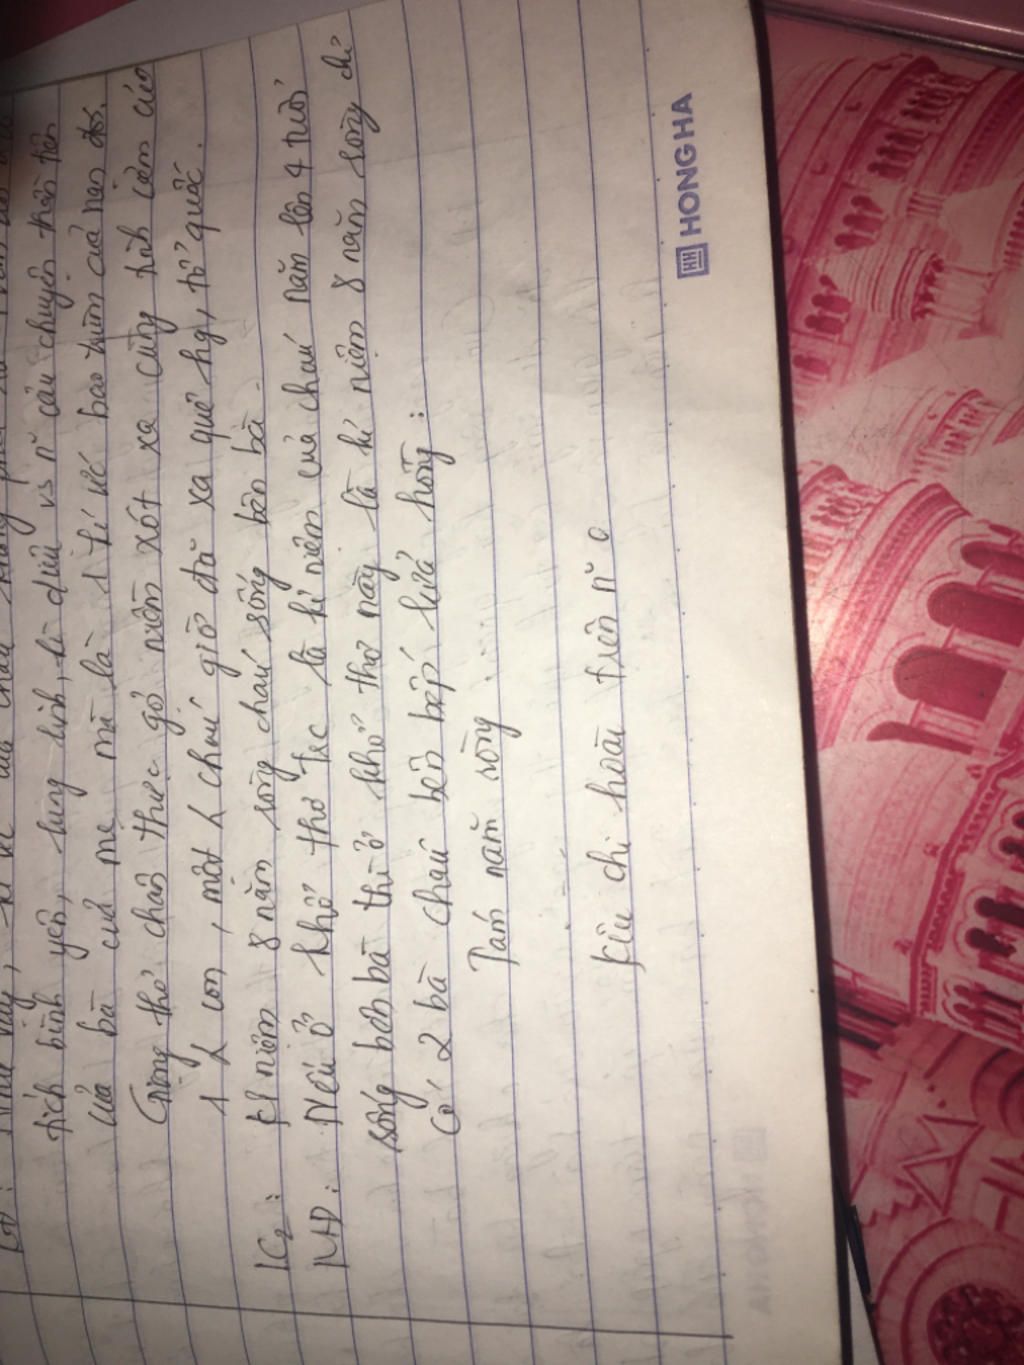 tích bình yên, lung linh, kì diệu vs n~ câu chuyện thần tiên
của bà của mẹ mà là 1 kí ức bao trùm của nạn đói.
Giọng thơ chân thực gợi niềm xót xa cùng tình cảm của
1 con, một chaú giờ đã xa quê hg, tổ quốc.
LC2: Kỉ niệm 8 năm ròng chaú sống bên bà.
MĐ: Nếu ở khổ thơ trc là kỉ niệm của chaú năm lên 4 tuổi
sống bên bà thì ở khổ thơ này là kỉ niệm 8 năm ròng chỉ
Có 2 bà chaú bên bếp lửa hồng:
Tám năm ròng
kêu chi hoài trên n~
HH HONG HA